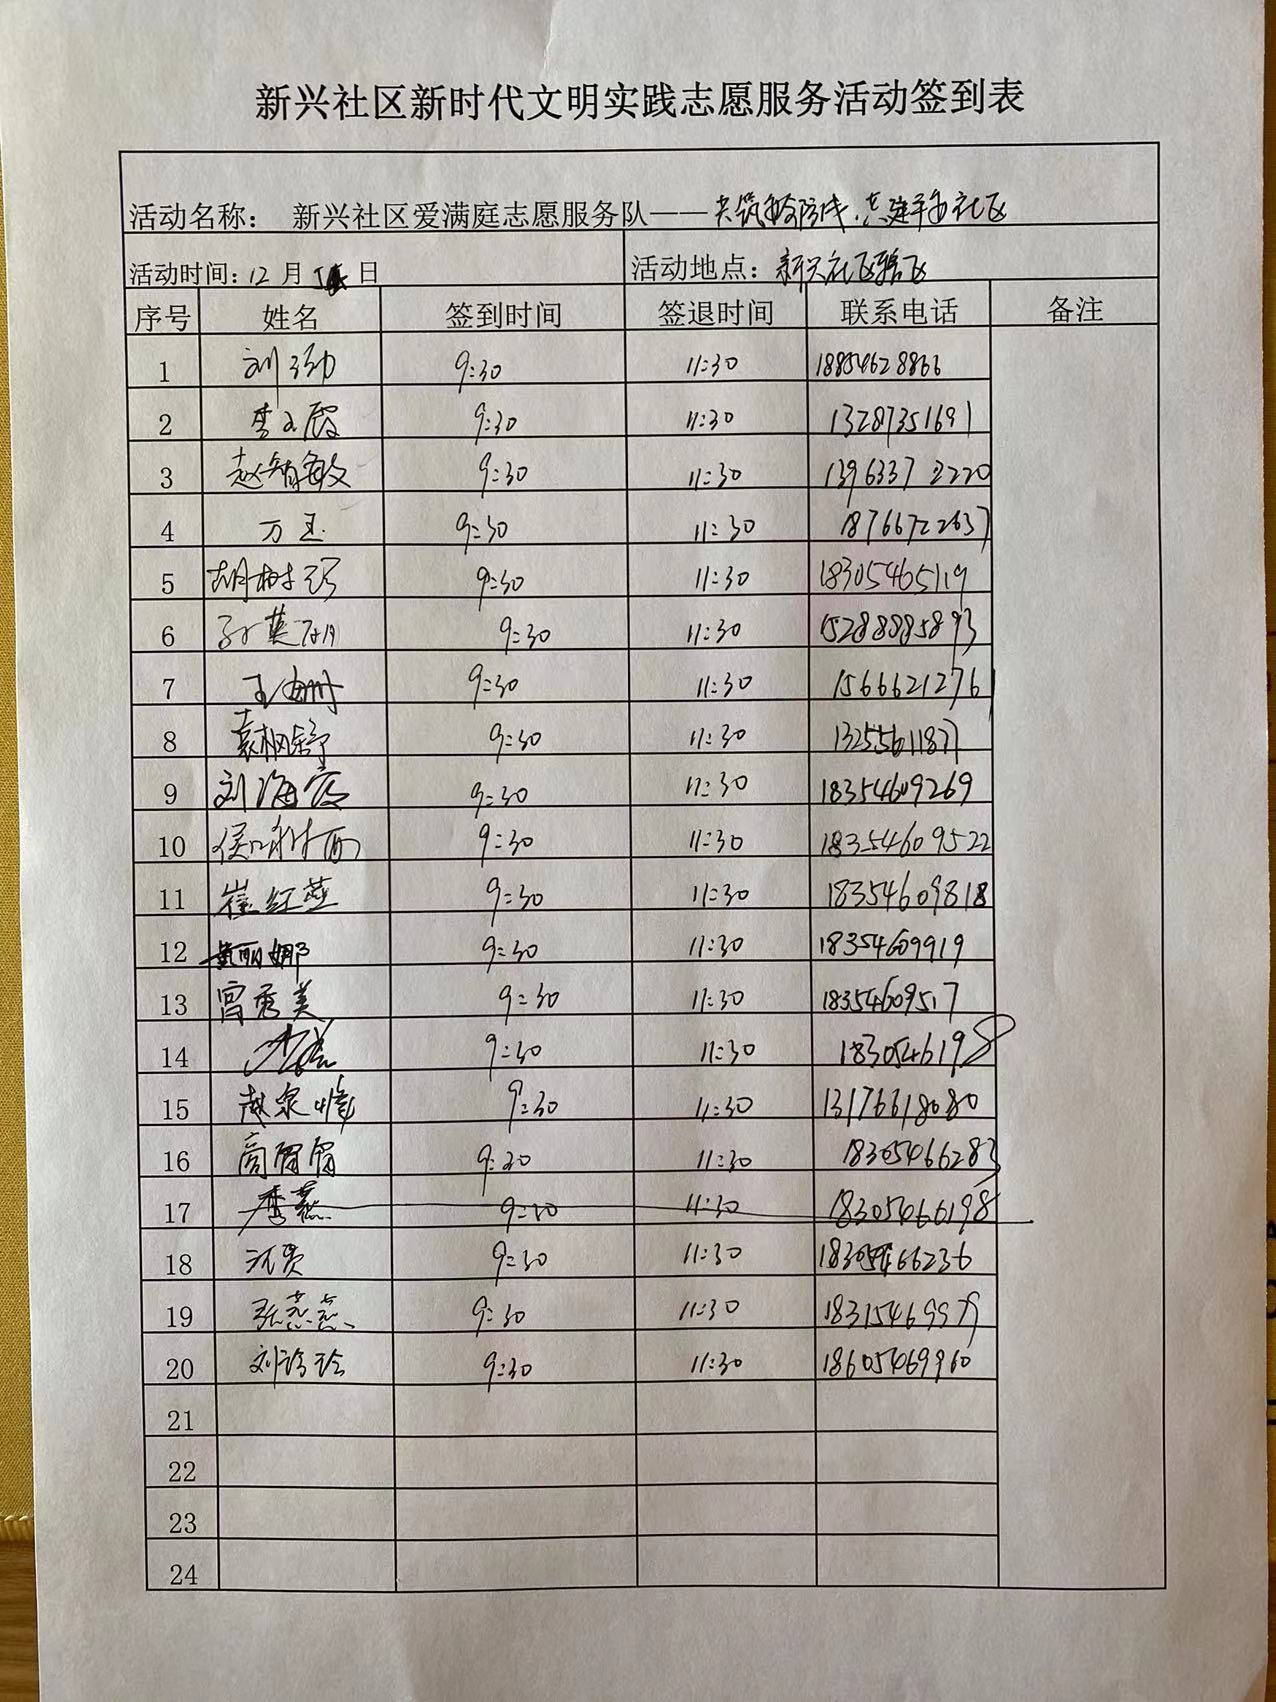 新兴社区新时代文明实践志愿服务活动签到表
活动名称： 新兴社区爱满庭志愿服务队——共筑安全防线.共建平安社区
活动时间：12 月 日 活动地点：新兴社区辖区
序号 姓名 签到时间 签退时间 联系电话 备注
1 刘 9:30 11:30 18854628866
2 李玉霞 9:30 11:30 13287351691
3 赵智敏 9:30 11:30 1396337 2220
4 万玉 9:30 11:30 18766722637
5 胡树 9:30 11:30 18305465119
6 孙英 9:30 11:30 15288885893
7 王 9:30 11:30 15666212761
8 袁枫舒 9:30 11:30 13255611871
9 刘海霞 9:30 11:30 18354609269
10 侯 雨 9:30 11:30 18354609522
11 崔红燕 9:30 11:30 18354609818
12 黄丽娜 9:30 11:30 18354609919
13 宫秀美 9:30 11:30 18354609517
14 9:30 11:30 1830546198
15 泉峰 9:30 11:30 13176618080
16 高眉眉 9:30 11:30 18305466283
17 李燕 9:30 11:30 18305466198
18 沈贤 9:30 11:30 18305466236
19 张燕燕 9:30 11:30 18315469979
20 刘玲玲 9:30 11:30 18605469960
21
22
23
24